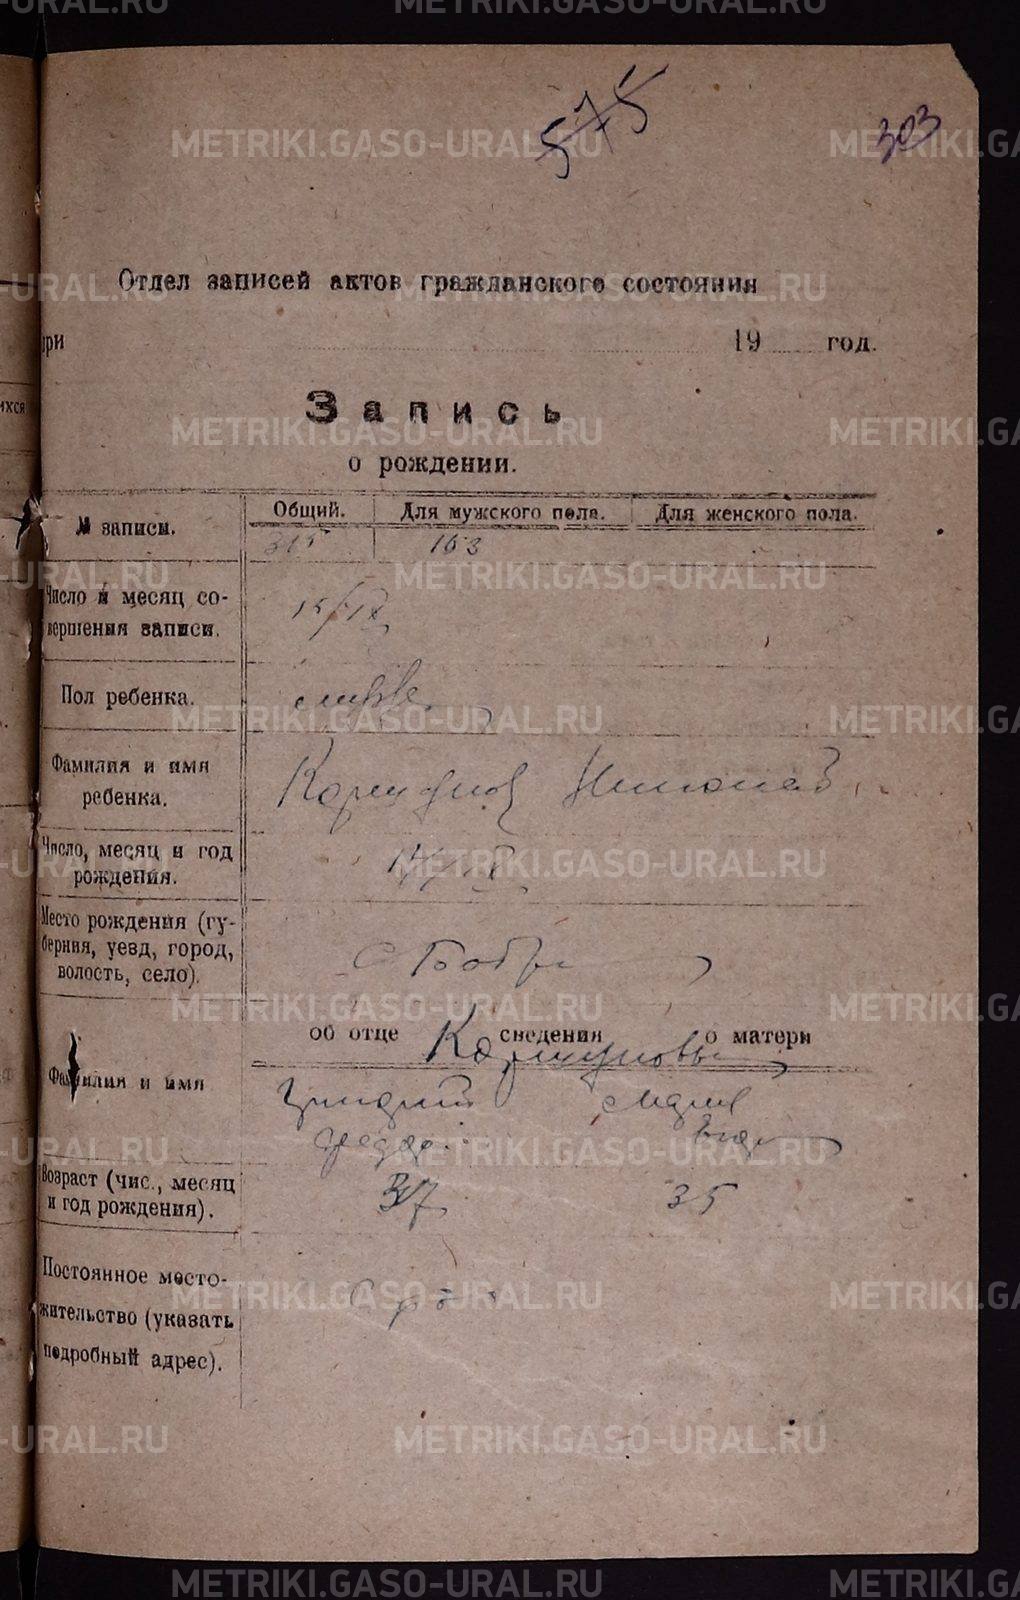 575
303
Отдел записей актов гражданского состояния
при 19 год.
Запись
о рождении.
№ записи.
Общий. Для мужского пола. Для женского пола.
315 163
Число и месяц со-
вершения записи.
15/IX
Пол ребенка.
Фамилия и имя
ребенка.
Николай
Число, месяц и год
рождения.
Место рождения (гу-
берния, уезд, город,
волость, село).
с
об отце сведения о матери
Коршуновы
Фамилия и имя
Мария
Возраст (чис., месяц
и год рождения).
37 35
Постоянное место-
жительство (указать
подробный адрес).
METRIKI.GASO-URAL.RU